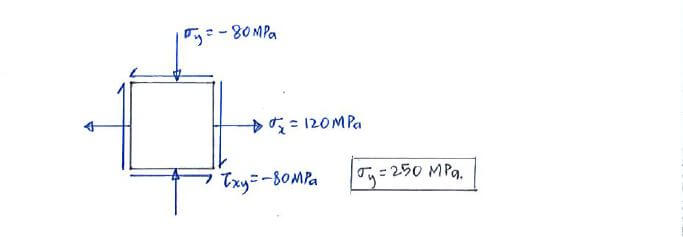 σy = - 80MPa
σx = 120MPa
τxy = -80MPa
σy = 250 MPa.